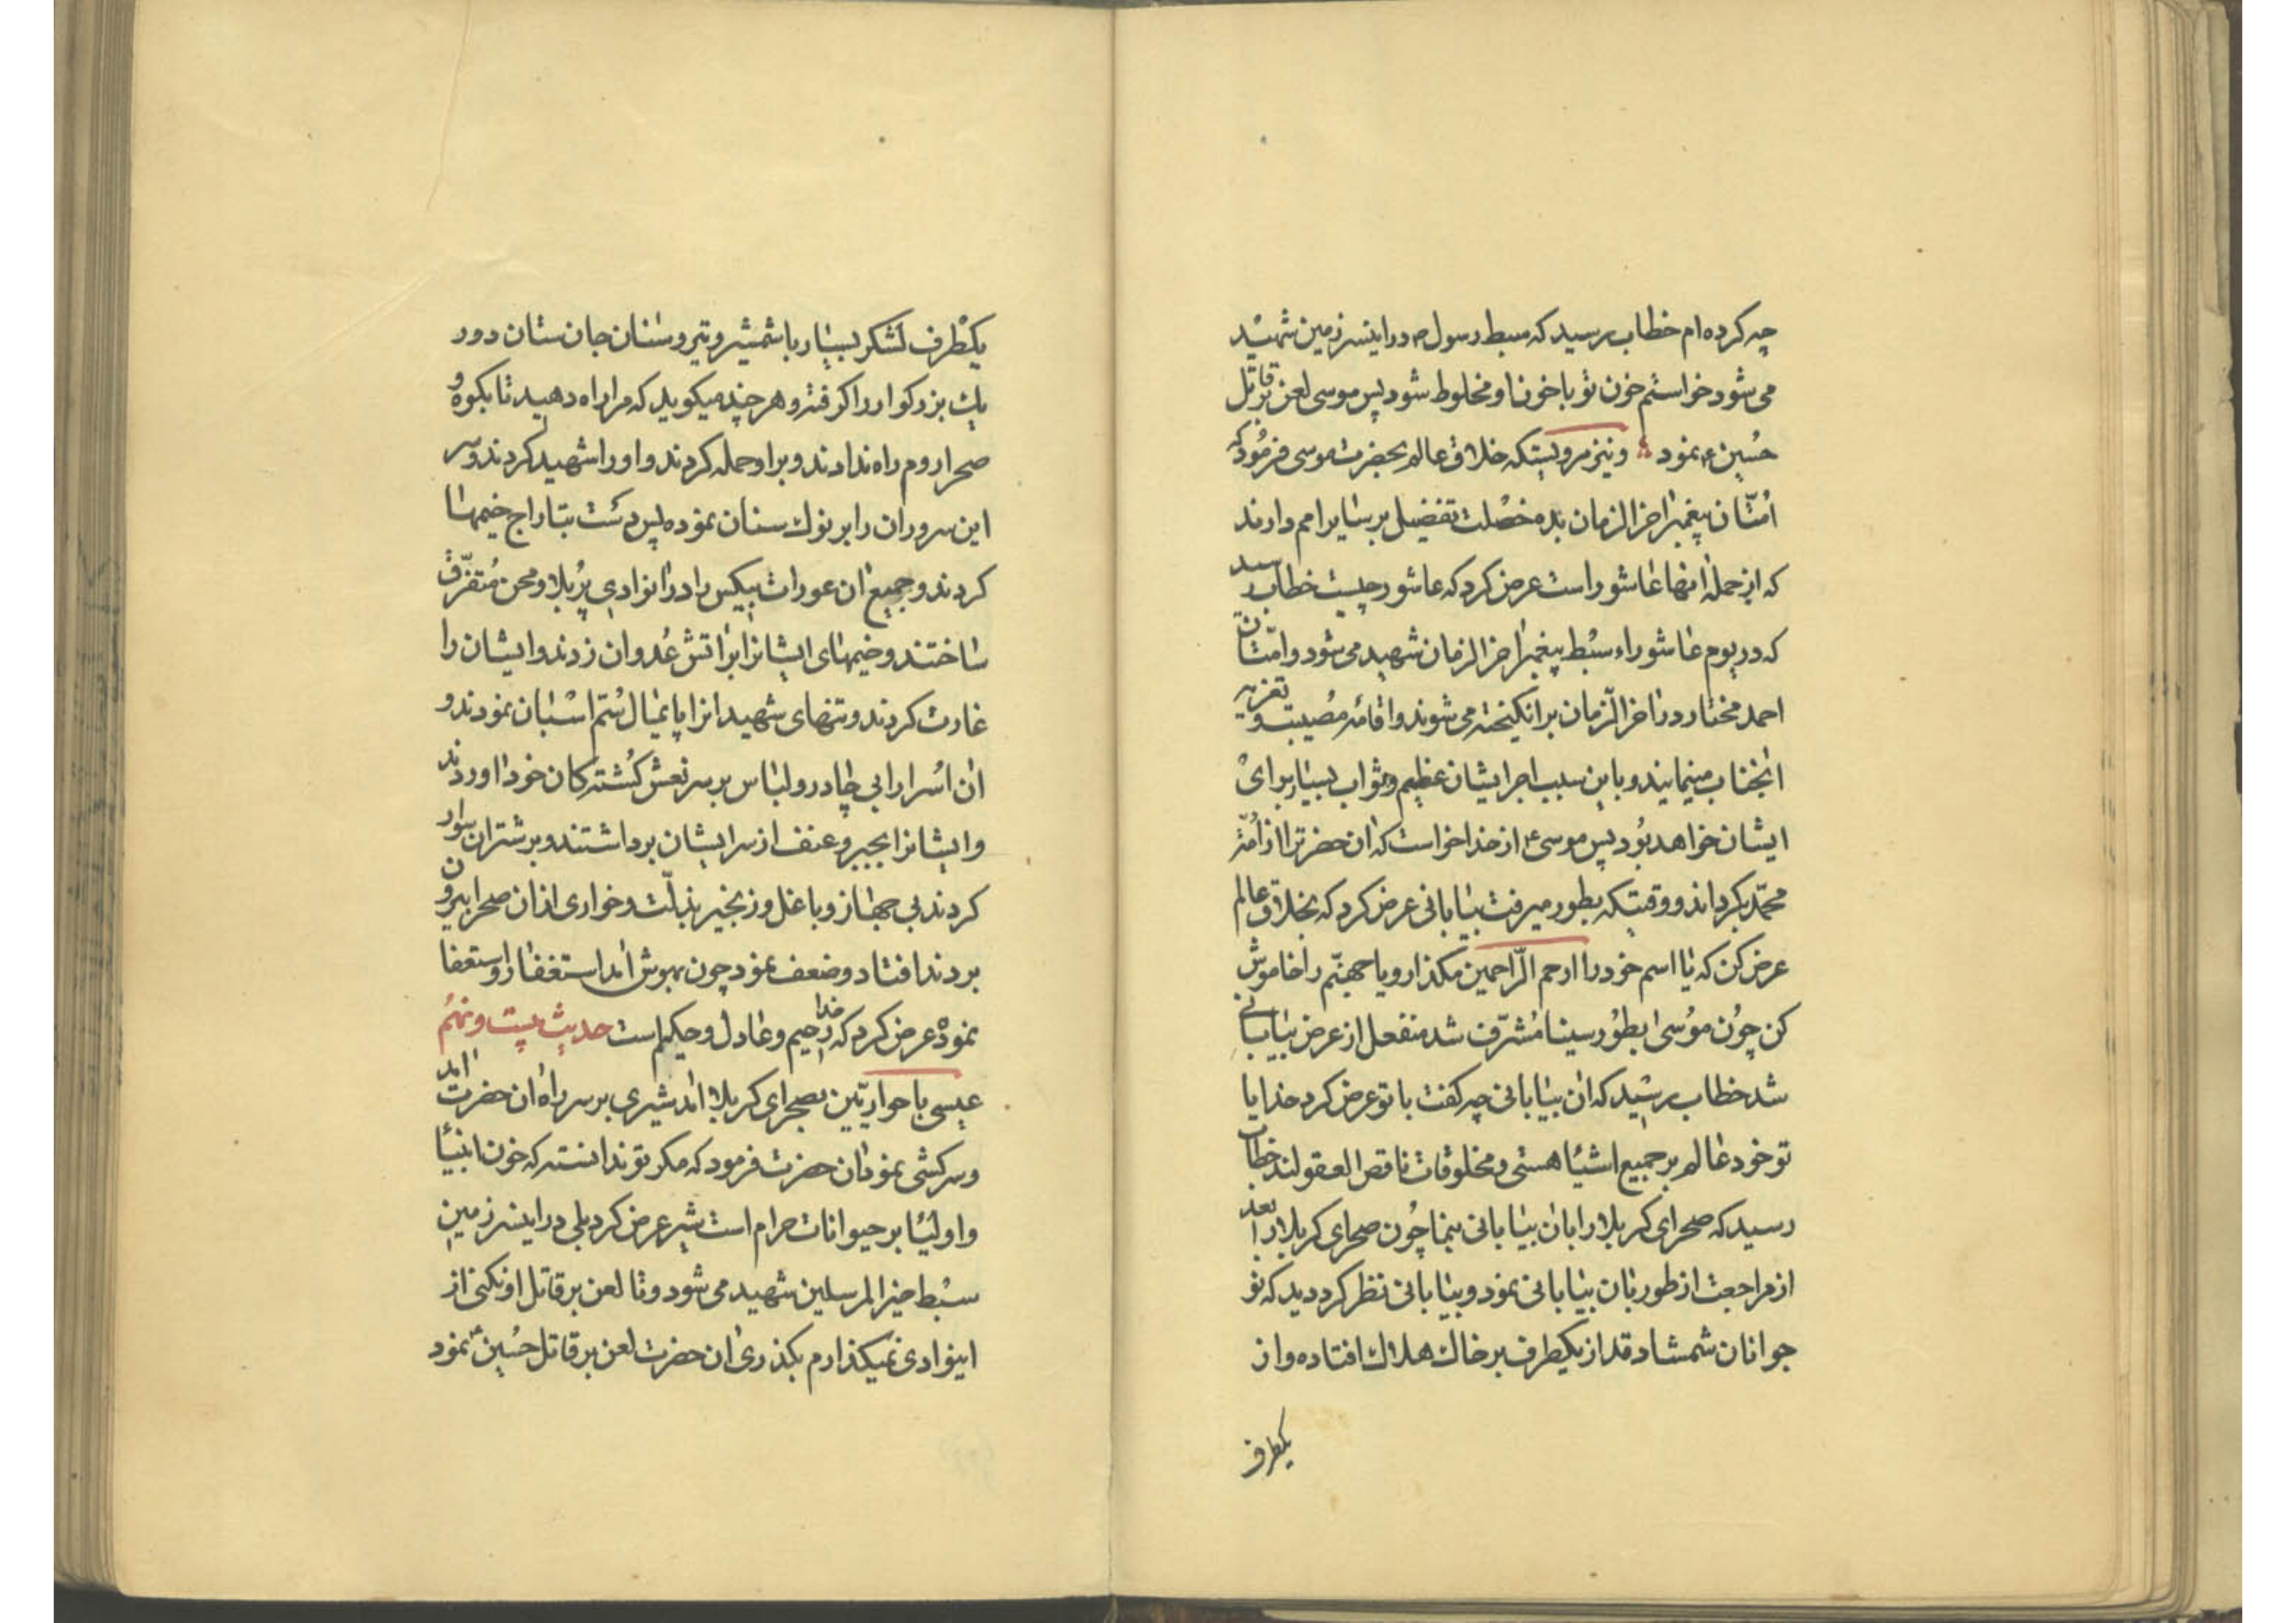 چه کرده‌ام خطاب رسید که سبط رسول ص در اینسرزمین شهید
می شود خواستم خون تو با خون او مخلوط شود پس موسی لعن بر قاتل
حُسین ع نمود و نیز مرویستکه خلاق عالم بحضرت موسی فرمُود که
اُمتّان پیغمبر اخر الزمان بده خصلت تفضیل بر سایر امم دارند
که از جمله انها عاشور است عرض کرد که عاشور چیست خطاب رسید
که در یوم عاشوراء سبط پیغمبر اخر الزمان شهید می شود و امتّان
احمد مختار در اخر الزّمان بر انکیخته می شوند و اقامه مصیبت و تعزیه
انجناب مینمایند و باین سبب اجر ایشان عظیم و ثواب بسیار برای
ایشان خواهد بُود پس موسی ع از خدا خواست که ان حضرترا از اُمّة
محمّد بکرداند و وقتیکه بطور میرفت بیابانی عرض کرد که بخلاق عالم
عرض کن که یا اسم خود را ارحم الرّاحمین مکذار و یا جهنّم را خاموش
کن چُون موُسی بطُور سینا مُشرّف شد منفعل از عرض بیابانی
شد خطاب رسید که ان بیابانی چه کفت با تو عرض کرد خدایا
تو خود عالم بر جمیع اشیا هستی و مخلوقات ناقص العقولند خطاب
رسید که صحرای کربلا را بان بیابانی بنما چُون صحرای کربلا را بعد
از مراجعت از طور بان بیابانی نمود و بیابانی نظر کرد دید که نو
جوانان شمشاد قد از یکطرف بر خاک هلاک افتاده و از
یکطرف
یکطرف لشکر بسیار با شمشیر و تیر و سنان جان ستان دور
یک بزرکوار را کرفته و هر چند میکوید که مرا راه دهید تا بکوه و
صحرا روم راه ندادند و بر او حمله کردند و او را شهید کردند و سر
این سروران را بر نوک سنان نموده پس دست بتاراج خیمها
کردند و جمیع ان عورات بیکس را در انوادی پُر بلا و محن مُتفرّق
ساختند و خیمهای ایشانرا بر اتش عُدوان زدند و ایشان را
غارت کردند و تنهای شهیدانرا پایمال سُتم اسبان نمودند و
ان اُسرا را بی چادر و لباس بر سر نعش کُشته کان خود اوردند
و ایشانرا بجبر و عنف از سر ایشان برداشتند و بر شتران سوار
کردند بی جهاز و با غل و زنجیر بذلّت و خواری از ان صحرا بیرون
بردند افتاد و ضعف نمود چون بهوش امد استغفار و استعفا
نموده عرض کرد که خدا رحیم و عادل و حکیم است حدیث بیست و نهُم
عیسی با حواریّین بصحرای کربلا امد شیری بر سر راه ان حضرت امد
و سرکشی نمود ان حضرت فرمود که مکر تو ندانسته که خون انبیا
و اولیا بر حیوانات حرام است شیر عرض کرد بلی در اینسرزمین
سبط خیر المرسلین شهید می شود و تا لعن بر قاتل او نکنی از
اینوادی نمیکذارم بکذری ان حضرت لعن بر قاتل حُسین ع نمود